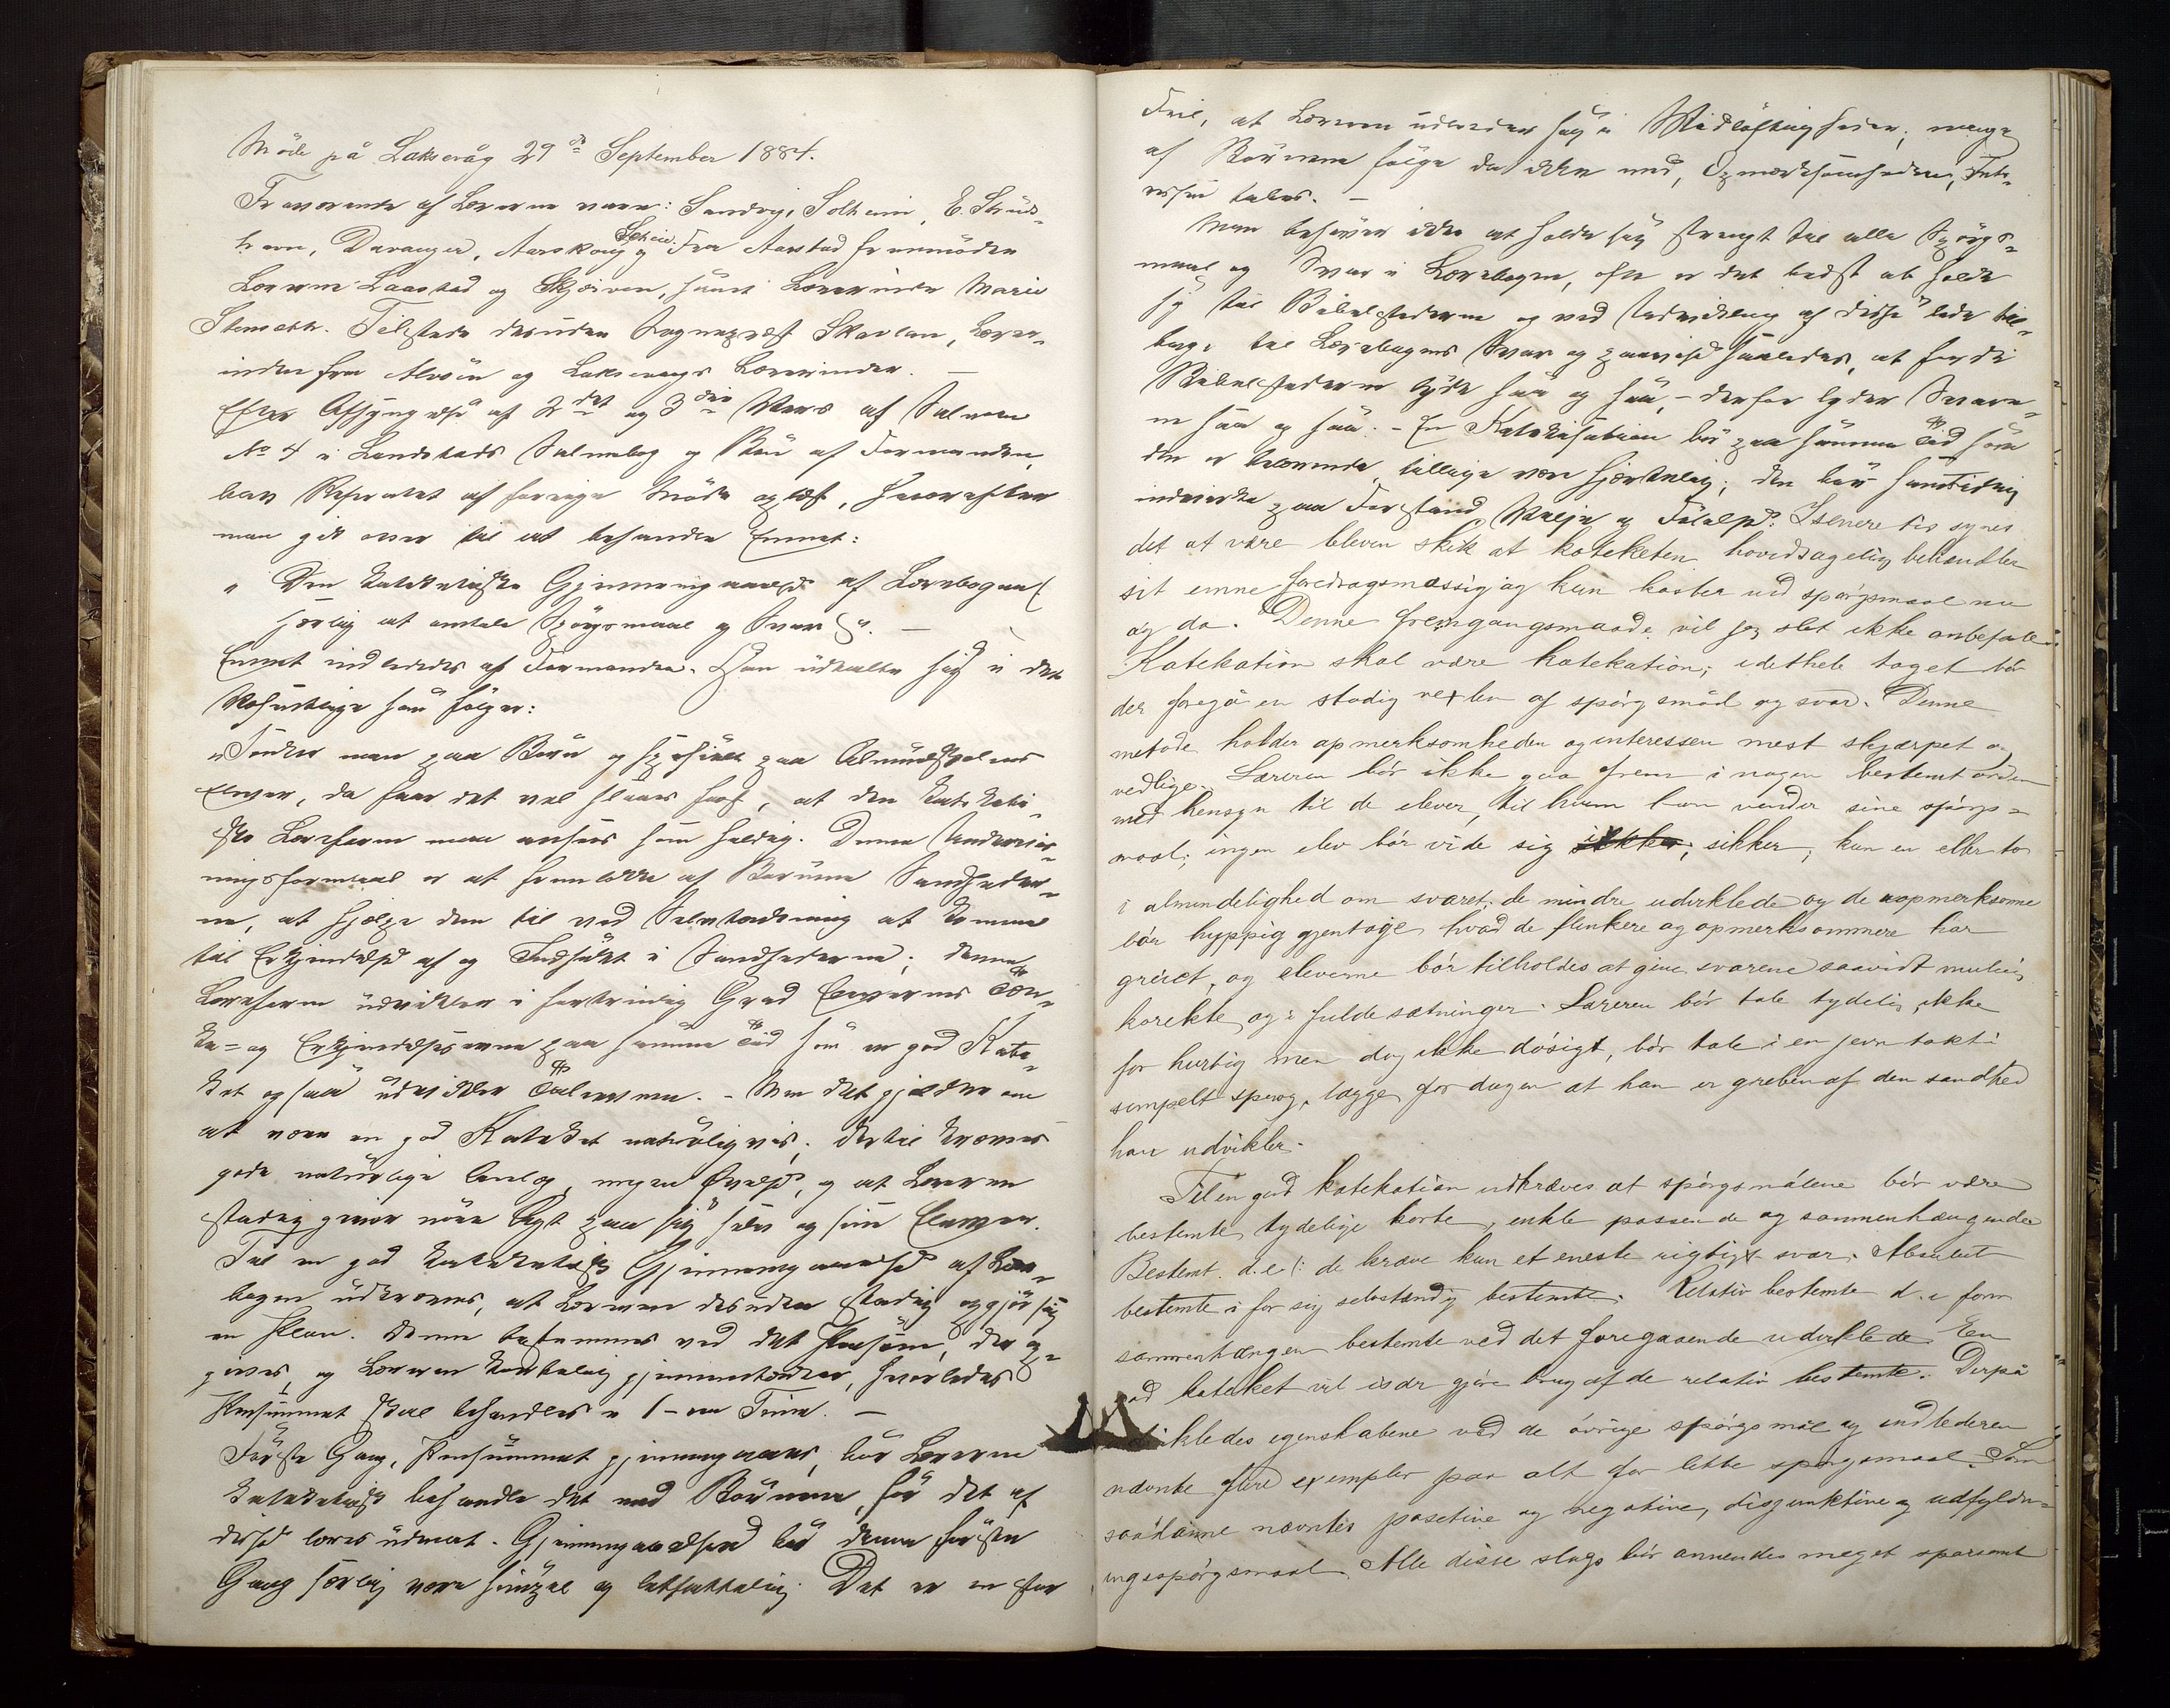 Møde på Laksevåg 29de September 1884.
Fraværende af Lærerne vare: Sandvig, Solheim, E. Skuds-
havn, Davanger, Aarskoug og Schei. Fra Aarstad fremmødte
Lærerne Laastad og Skjeiven, samt Lærerinde Marie
Stenseth. Tilstede desuden Sogneprest Skavlan, Lærer-
inden fra Alvøen og Laksevaags Lærerinder. —
Efter Afsyngelse af 2det og 3die Vers af Salmen
No 4 i Landstads Salmebog og Bøn af Formanden,
blev Referatet af forrige Møde oplæst, hvorefter
man gik over til at behandle Emnet:
"Den kateketiske Gjennemgaaelse af Lærebogen (
særlig at omtale Spørgsmaal og Svar)". —
Emnet indlededes af Formanden. Han udtalte sig i det
Væsentlige som følger:
"Tænker man paa Børn og specielt paa Almueskolens
Elever, da faar det vel slaaes fast, at den kateketi-
ske Læreform maa ansees som heldig. Denne Undervis-
ningsformaal er at fremlokke af Børnene Sandheder-
ne, at hjelpe dem til ved Selvtænkning at komme
til Erkjendelse af og Indsigt i Sandhederne; denne
Læreform udvikler i fortrinlig Grad Elevernes Tæn-
ke- og Erkjendelsesevne paa samme Tid som en god Kate-
ket ogsaa udvikler Taleevnen. - Men det gjælder om
at være en god Kateket naturligvis; dertil kræves
gode naturlige Anlæg, megen Øvelse, og at Læreren
stadig giver nøie Agt paa sig selv og sine Elever.
Til en god kateketisk Gjennemgaaelse af Lære-
bogen udkræves, at Læreren desuden stadig opgjør sig
en Plan. Denne bestemmes ved det Pensum, der op-
gives, og Læreren kortelig gjennemtænker, hvorledes
Pensummet skal behandles i 1-en Time. —
Første Gang, Pensummet gjennemgaaes, bør Læreren
kateketisk behandle det med Børnene, før det af
disse læres udenat. Gjennemgaaelsen bør denne første
Gang særlig være simpel og letfattelig. Det er en stor
Feil, at Læreren udbreder sig i Vidtløftigheder; mange
af Børnene følge da ikke med, Opmærksomheden, Inte-
ressen tabes. —
Man behøver ikke at holde sig strengt til alle Spørgs-
maal og Svar i Lærebogen, ofte er det bedst at holde
sig til Bibelstederne og ved Udvikling af disse lede til-
bage til Lærebogens Svar og paavise saaledes, at fordi
Bibelstederne lyde saa og saa, - derfor lyder Svare-
ne saa og saa. - En Katekisation bør paa samme Tid som
den er belærende, tillige være hjertelig; den bør samtidig
indvirke paa Forstand, Vilje og Følelse. I senere tid synes
det at være bleven skik at kateketen hovedsagelig behandler
sit emne foredragsmæssig og kun kaster ud spørgsmaal nu
og da. Denne fremgangsmaade vil jeg slet ikke anbefale.
Katekation skal være katekation; i dethele taget bør
der foregå en stadig vexlen af spørgsmål og svar. Denne
metode holder opmerksomheden og interessen mest skjærpet og
vedlige. Læreren bør ikke gaa frem i nogen bestemt orden
med hensyn til de elever, til hvem han vender sine spørgs-
maal; ingen elev bør vide sig sikker; kun en eller to
i almindelighed om svaret; de mindre udviklede og de uopmerksomme
bør hyppig gjentage hvad de flinkere og opmerksommere har
greiet, og eleverne bør tilholdes at give svarene saavidt mulig
korekte og i fulde sætninger. Læreren bør tale tydelig, ikke
for hurtig men dog ikke døsigt, bør tale i en jevn takt i
simpelt sprog, lægge for dagen at han er greben af den sandhed
han udvikler.
Til en god katekation udkræves at spørgsmålene bør være
bestemte, tydelige korte, enkle passende og sammenhængende
Bestemt. d.e. (: de kræve kun et eneste rigtigt svar. Absolut
bestemte i for sig selvstændig bestemte. Relativ bestemte d.e form
sammenhængen bestemte ved det foregaaende udviklede En
od kateket vil især gjøre brug af de relativ bestemte. Derpå
ikledes egenskabene ved de øvrige spørgsmål og indlederen
nævnte flere exempler paa alt for lette spørgsmaal. Som
saadanne nævntes posetive og negative, disjunktive og udfyldn-
ingsspørgsmaal. Alle disse slags bør anvendes meget sparsomt